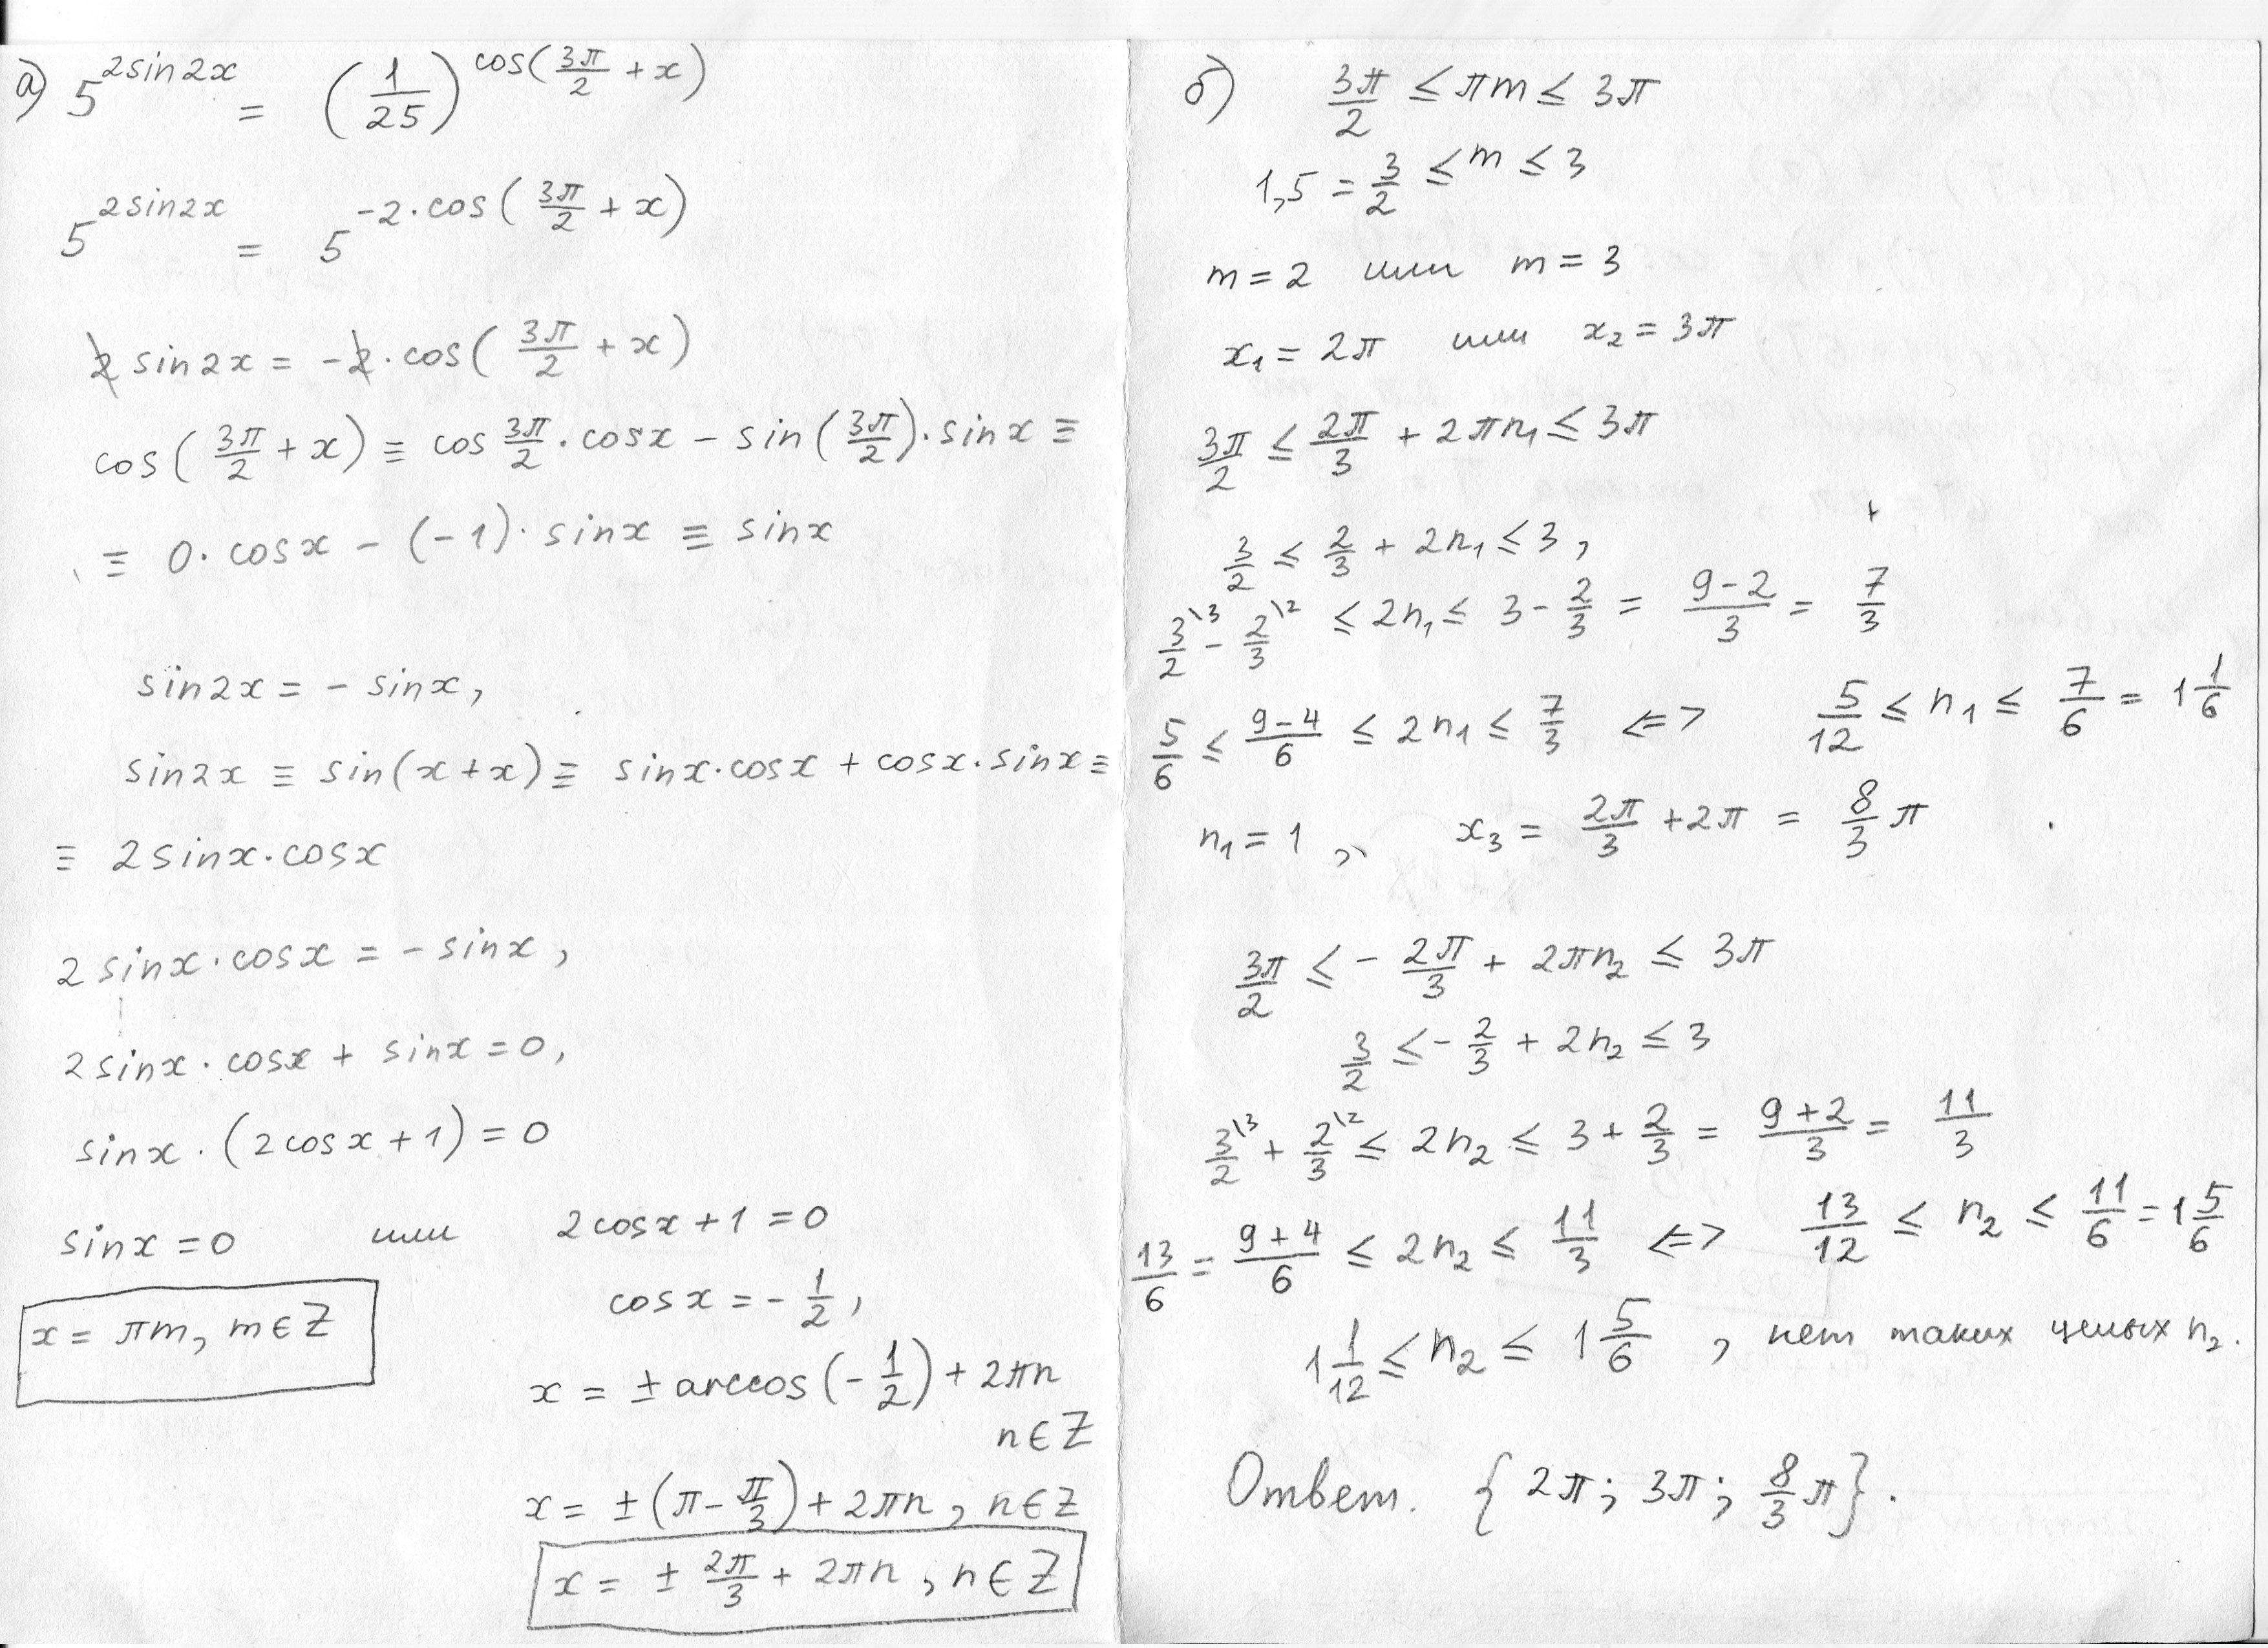 а) 5^{2sin2x} = (1/25)^{cos(3π/2 + x)}
5^{2sin2x} = 5^{-2·cos(3π/2 + x)}
2 sin2x = -2·cos(3π/2 + x)
cos(3π/2 + x) ≡ cos 3π/2 · cosx - sin(3π/2)·sinx ≡
≡ 0·cosx - (-1)·sinx ≡ sinx
sin2x = - sinx,
sin2x ≡ sin(x+x) ≡ sinx·cosx + cosx·sinx ≡
≡ 2sinx·cosx
2sinx·cosx = - sinx,
2sinx·cosx + sinx = 0,
sinx·(2cosx+1) = 0
sinx = 0 или 2cosx+1 = 0
cosx = - 1/2,
x = πm, m∈Z
x = ± arccos(-1/2) + 2πn
n∈Z
x = ±(π - π/3) + 2πn, n∈Z
x = ± 2π/3 + 2πn, n∈Z
б) 3π/2 ≤ πm ≤ 3π
1,5 = 3/2 ≤ m ≤ 3
m = 2 или m = 3
x₁ = 2π или x₂ = 3π
3π/2 ≤ 2π/3 + 2πn₁ ≤ 3π
3/2 ≤ 2/3 + 2n₁ ≤ 3,
3/2^{\3} - 2/3^{\2} ≤ 2n₁ ≤ 3 - 2/3 = (9-2)/3 = 7/3
5/6 ≤ (9-4)/6 ≤ 2n₁ ≤ 7/3 <=> 5/12 ≤ n₁ ≤ 7/6 = 1 1/6
n₁ = 1, x₃ = 2π/3 + 2π = 8/3 π
3π/2 ≤ - 2π/3 + 2πn₂ ≤ 3π
3/2 ≤ - 2/3 + 2n₂ ≤ 3
3/2^{\3} + 2/3^{\2} ≤ 2n₂ ≤ 3 + 2/3 = (9+2)/3 = 11/3
13/6 = (9+4)/6 ≤ 2n₂ ≤ 11/3 <=> 13/12 ≤ n₂ ≤ 11/6 = 1 5/6
1 1/12 ≤ n₂ ≤ 1 5/6, нет таких целых n₂.
Ответ. {2π; 3π; 8/3 π}.